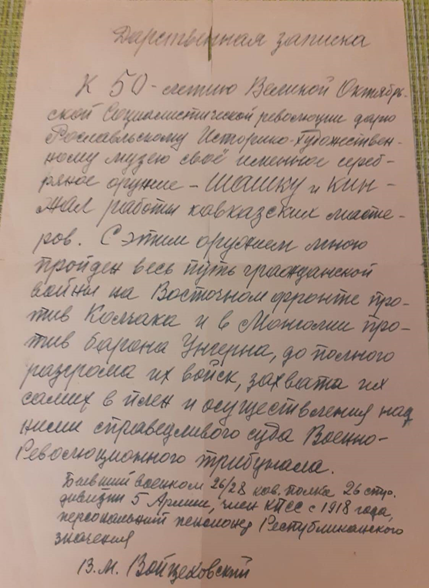 Дарственная записка
К 50-летию Великой Октябрь-
ской Социалистической революции дарю
Рославльскому Историко-художествен-
ному музею своё именное сереб-
ряное оружие – шашку и кин-
жал работы кавказских масте-
ров. С этим оружием мною
пройден весь путь гражданской
войны на Восточном фронте про-
тив Колчака и в Монголии про-
тив барона Унгерна, до полного
разгрома их войск, захвата их
самих в плен и осуществления над
ними справедливого суда Военно-
Революционного трибунала.
Бывший военком 26/28 кав. полка 26 стр.
дивизии 5 Армии, член КПСС с 1918 года,
персональный пенсионер Республиканского
значения
В.М. Войцеховский